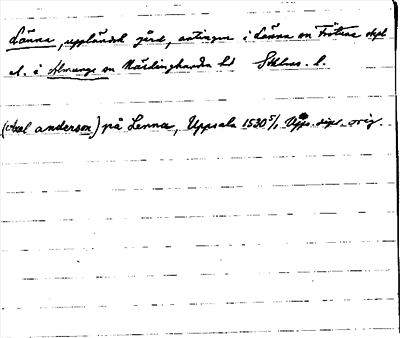 Länna, uppländsk gård, antingen i Länna sn Frötuna skpl
el. i Almunge sn Närdinghundra hd Sthlms. l.
(Axel anderson) på Lenna, Uppsala 1530 5/1 Upps. dipl. orig.